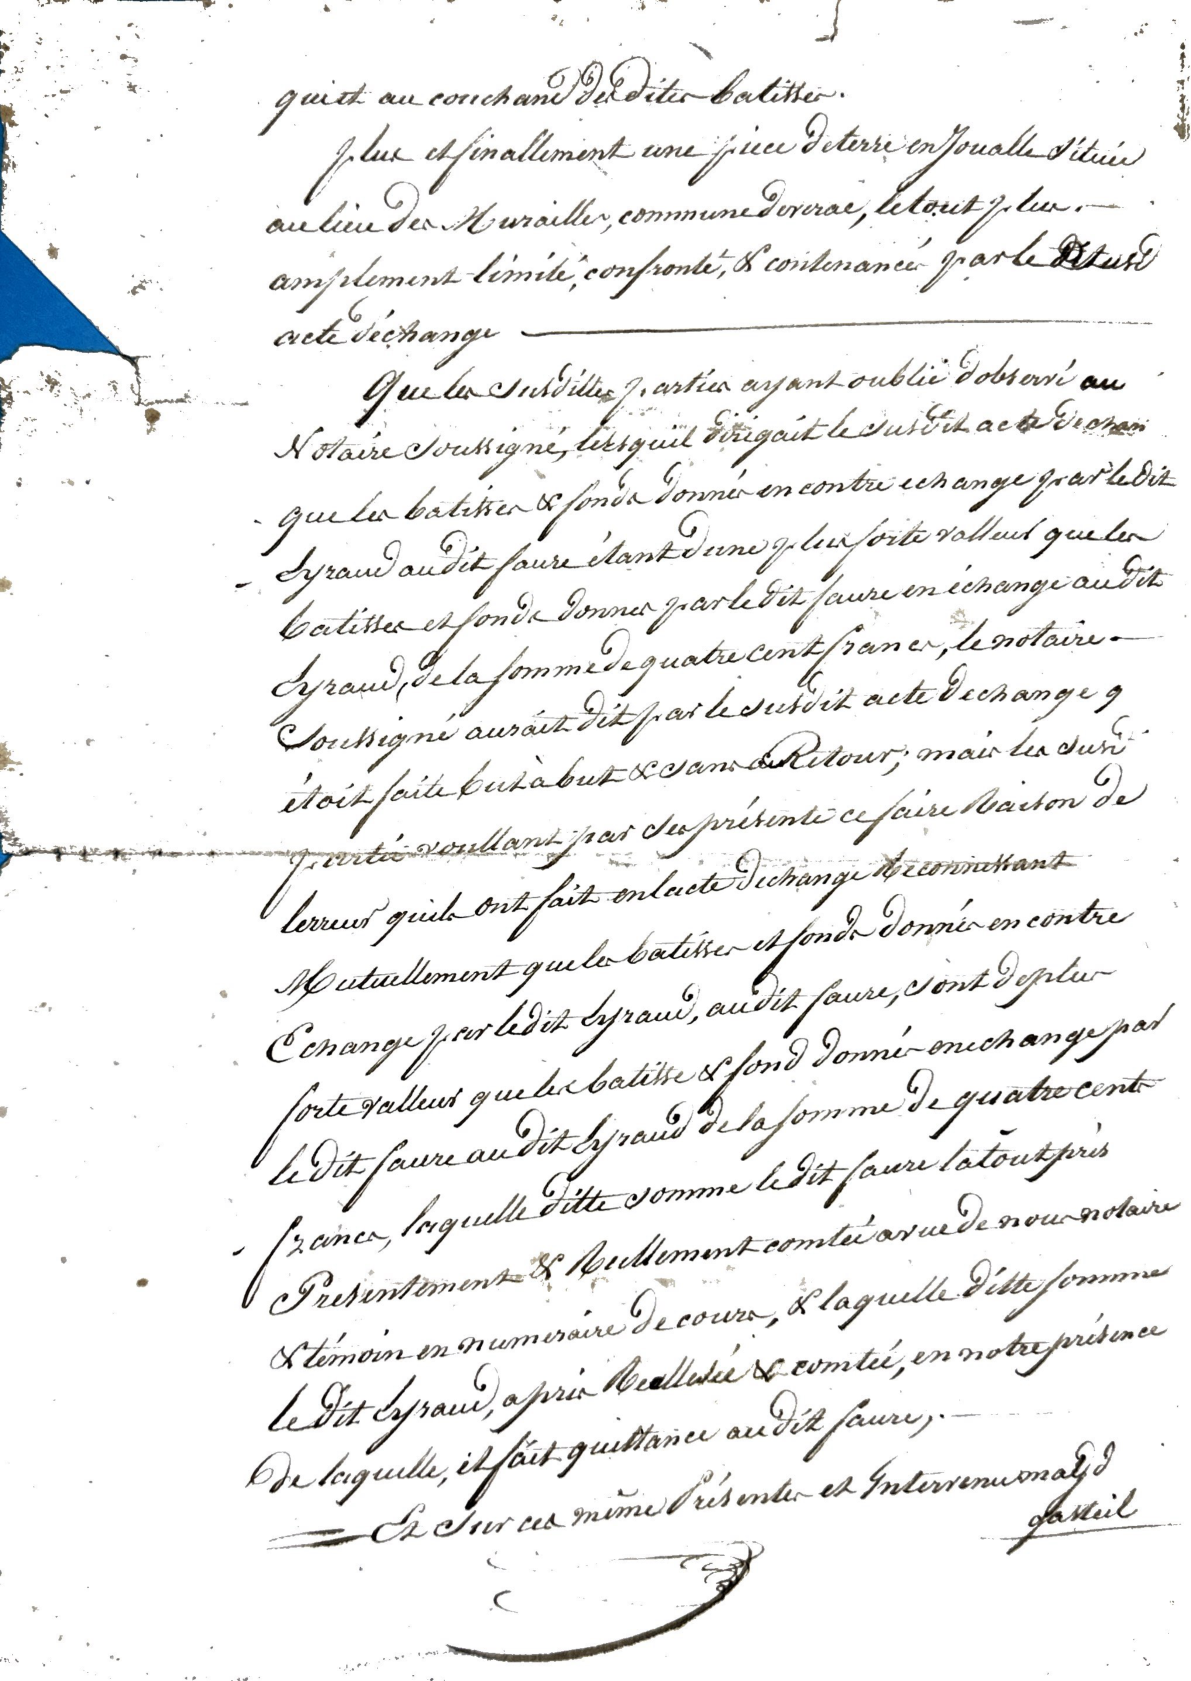 qui est au couchand des dites batisses.
plus et finallement une piece de terre en Joualle située
au lieu des Murailles, commune devrai, le tout plus
amplement limité, confronté, & contenancés par le
acte d'échange
Que les susdittes parties ayant oublié d'observé au
Notaire soussigné, lorsquil dirigait le susdit acte dechan
que les batisses & fonds donnés en contre echange par le dit
Lyraud au dit faure étant d'une plus forte valleur que les
batisses et fonds donnes par le dit faure en échange au dit
Lyraud, de la somme de quatre cent francs, le notaire
soussigné aurait dit par le susdit acte dechange q
étoit faite but à but & sans Retour; mais les susd
partie voullant par ses présente ce faire Raison de
lerreur quils ont fait en lacte dechange Reconnessant
Mutuellement que les batisses et fonds donnés en contre
Echange par le dit Lyraud, au dit faure, sont de plus
forte valleur que les batisse & fond donnés en echange par
le dit faure au dit Lyraud de la somme de quatre cents
francs, laquelle ditte somme le dit faure la tout près
Presentement & Reellement comtée a vue de nous notaire
& témoin en numeraire de cours, & laquelle ditte somme
le dit Lyraud, après & comtée, en notre présence
de laquelle, il fait quittance au dit faure,
Et sur ces même Présentes et Intervenu
gasteil